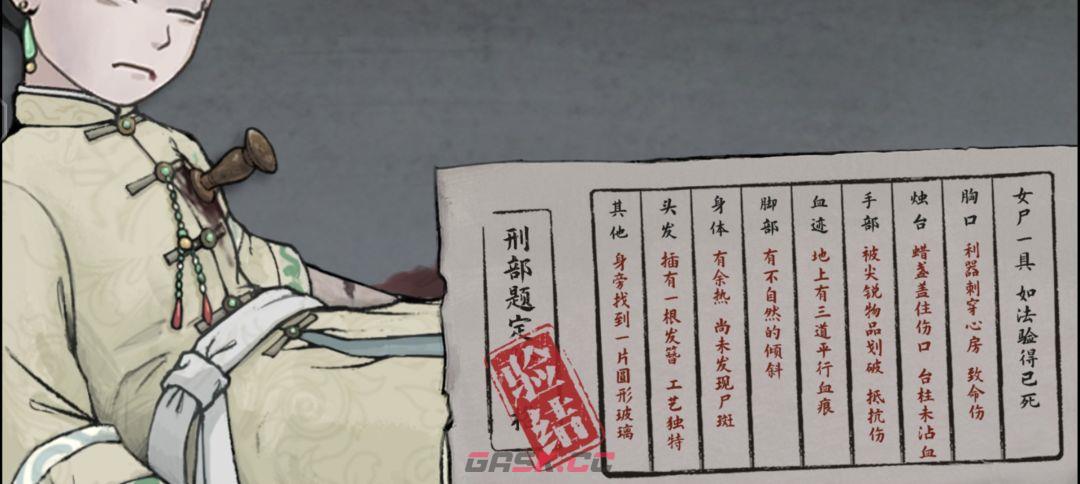 女尸一具 如法验得已死
胸口 利器刺穿心房 致命伤
烛台 蜡盏盖住伤口 台柱未沾血
手部 被尖锐物品划破 抵抗伤
血迹 地上有三道平行血痕
脚部 有不自然的倾斜
身体 有余热 尚未发现尸斑
头发 插有一根发簪 工艺独特
其他 身旁找到一片圆形玻璃
刑部题定
验结
GASK.CC